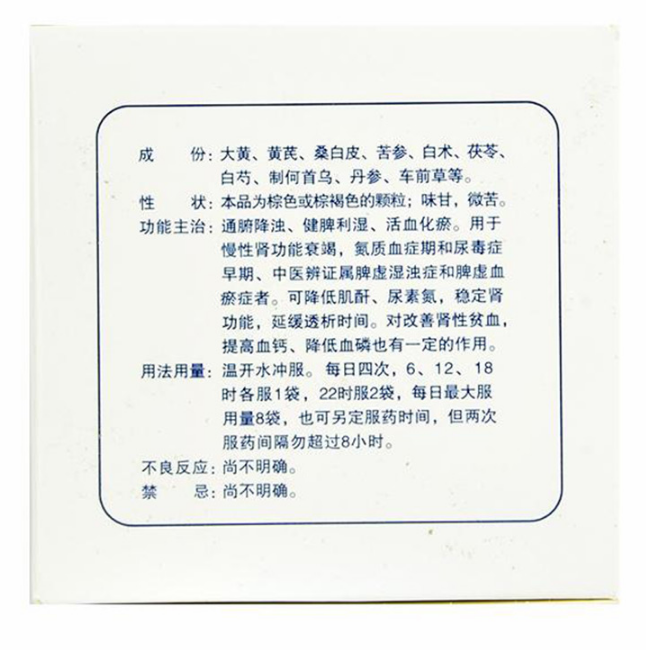 成　份：大黄、黄芪、桑白皮、苦参、白术、茯苓、
白芍、制何首乌、丹参、车前草等。
性　状：本品为棕色或棕褐色的颗粒；味甘，微苦。
功能主治：通腑降浊、健脾利湿、活血化瘀。用于
慢性肾功能衰竭，氮质血症期和尿毒症
早期、中医辨证属脾虚湿浊症和脾虚血
瘀症者。可降低肌酐、尿素氮，稳定肾
功能，延缓透析时间。对改善肾性贫血，
提高血钙、降低血磷也有一定的作用。
用法用量：温开水冲服。每日四次，6、12、18
时各服1袋，22时服2袋，每日最大服
用量8袋，也可另定服药时间，但两次
服药间隔勿超过8小时。
不良反应：尚不明确。
禁　忌：尚不明确。